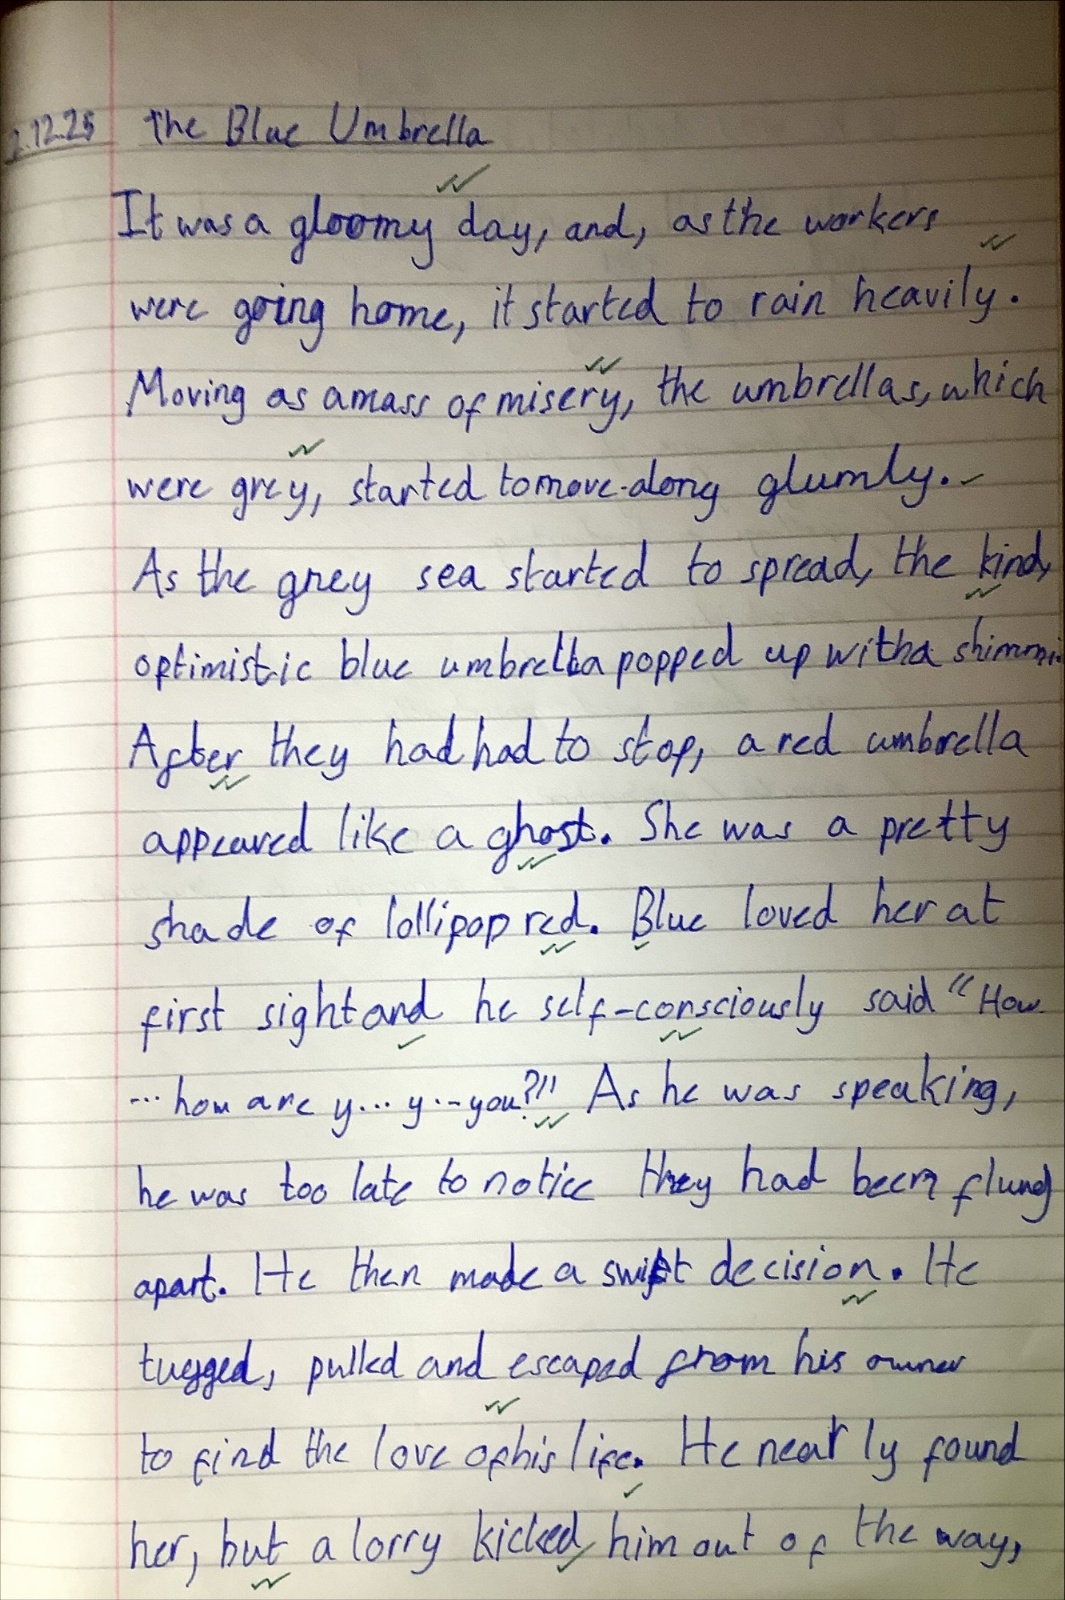 2.12.25 the Blue Umbrella
It was a gloomy day, and, as the workers
were going home, it started to rain heavily.
Moving as a mass of misery, the umbrellas, which
were grey, started to move along glumly.
As the grey sea started to spread, the kind,
optimistic blue umbrella popped up with a shimmi
After they had had to stop, a red umbrella
appeared like a ghost. She was a pretty
shade of lollipop red. Blue loved her at
first sight and he self-consciously said "How
... how are y... y...you?!" As he was speaking,
he was too late to notice they had been flung
apart. He then made a swift decision. He
tugged, pulled and escaped from his owner
to find the love of his life. He nearly found
her, but a lorry kicked him out of the way,